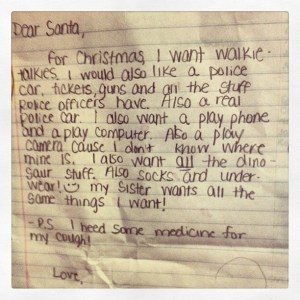 Dear Santa,
For Christmas, I want walkie-
talkies. I would also like a police
car, tickets, guns and all the stuff
police officers have. Also a real
police car. I also want a play phone
and a play computer. Also a play
camera cause I don't know where
mine is. I also want all the dino-
saur stuff. Also socks and under-
wear! my sister wants all the
same things I want!
-P.S. I need some medicine for
my cough!
Love,